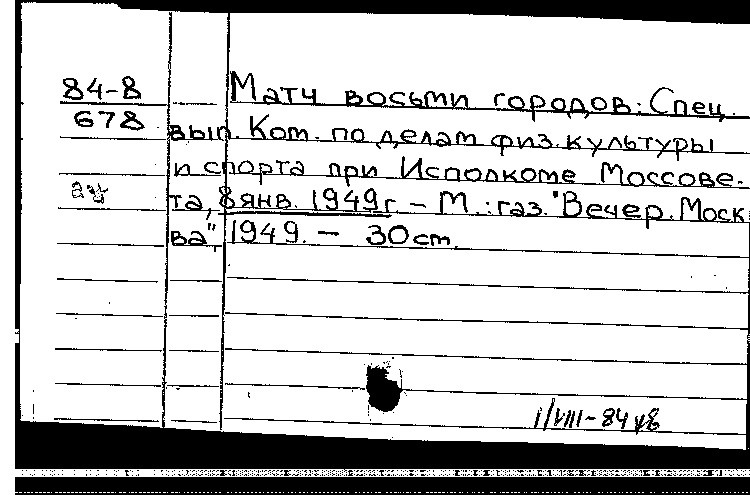 84-8
678
Матч восьми городов: Спец.
вып. Ком. по делам физ.культуры
и спорта при Исполкоме Моссове-
та, 8 янв. 1949 г. – М.: газ. "Вечер. Моск
ва", 1949. – 30 cm.
1/VIII-84